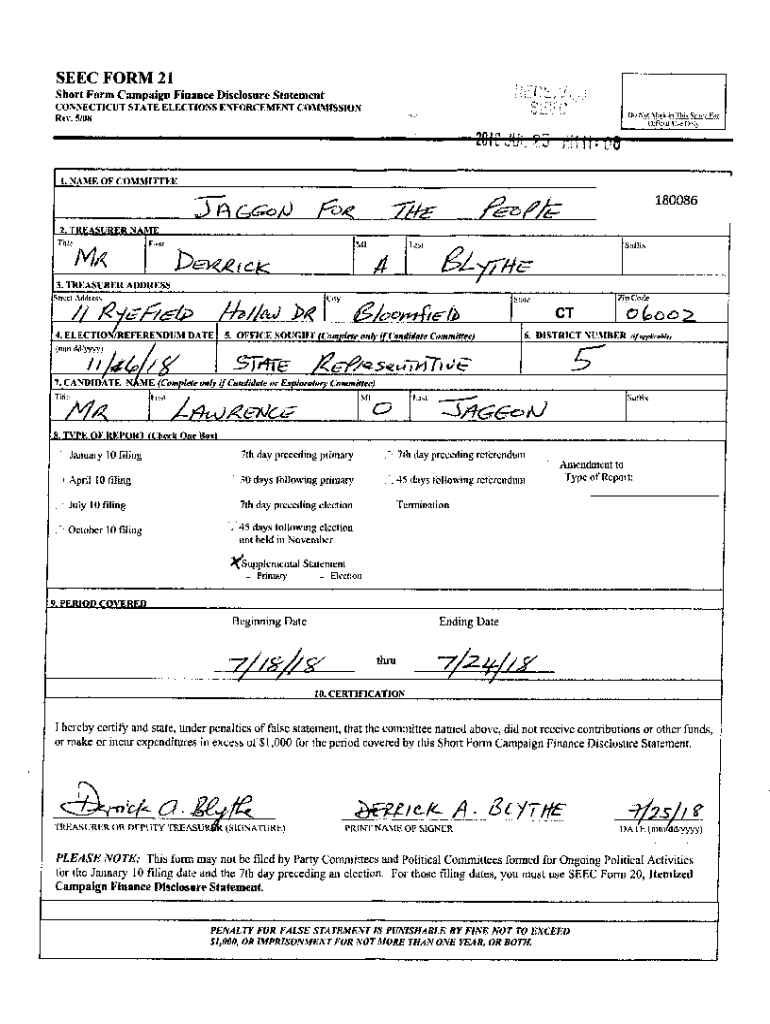 SEEC FORM 21
Short Form Campaign Finance Disclosure Statement
CONNECTICUT STATE ELECTIONS ENFORCEMENT COMMISSION
Rev. 5/08
RECEIVED
SEEC
Do Not Mark in This Space For
Official Use Only
1. NAME OF COMMITTEE
JAGGON FOR THE PEOPLE
180086
2. TREASURER NAME
Title First MI Last Suffix
MR DERRICK A BLYTHE
3. TREASURER ADDRESS
Street Address City State Zip Code
11 RYEFIELD Hollow DR Bloomfield CT 06002
4. ELECTION/REFERENDUM DATE 5. OFFICE SOUGHT (Complete only if Candidate Committee) 6. DISTRICT NUMBER (if applicable)
(mm/dd/yyyy)
11/6/18 STATE REPresentative 5
7. CANDIDATE NAME (Complete only if Candidate or Exploratory Committee)
Title First MI Last Suffix
MR LAWRENCE O JAGGON
8. TYPE OF REPORT (Check One Box)
January 10 filing 7th day preceding primary 7th day preceding referendum
Amendment to
Type of Report:
April 10 filing 30 days following primary 45 days following referendum
July 10 filing 7th day preceding election Termination
October 10 filing 45 days following election
not held in November
X Supplemental Statement
Primary Election
9. PERIOD COVERED
Beginning Date Ending Date
7/18/18 thru 7/24/18
10. CERTIFICATION
I hereby certify and state, under penalties of false statement, that the committee named above, did not receive contributions or other funds,
or make or incur expenditures in excess of $1,000 for the period covered by this Short Form Campaign Finance Disclosure Statement.
Derrick A. Blythe DERRICK A. BLYTHE 7/25/18
TREASURER OR DEPUTY TREASURER (SIGNATURE) PRINT NAME OF SIGNER DATE (mm/dd/yyyy)
PLEASE NOTE: This form may not be filed by Party Committees and Political Committees formed for Ongoing Political Activities
for the January 10 filing date and the 7th day preceding an election. For those filing dates, you must use SEEC Form 20, Itemized
Campaign Finance Disclosure Statement.
PENALTY FOR FALSE STATEMENT IS PUNISHABLE BY FINE NOT TO EXCEED
$1,000, OR IMPRISONMENT FOR NOT MORE THAN ONE YEAR, OR BOTH.